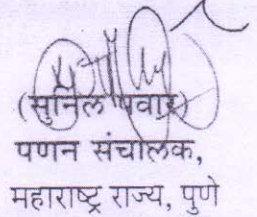 (सुनिल पवार)
पणन संचालक,
महाराष्ट्र राज्य, पुणे